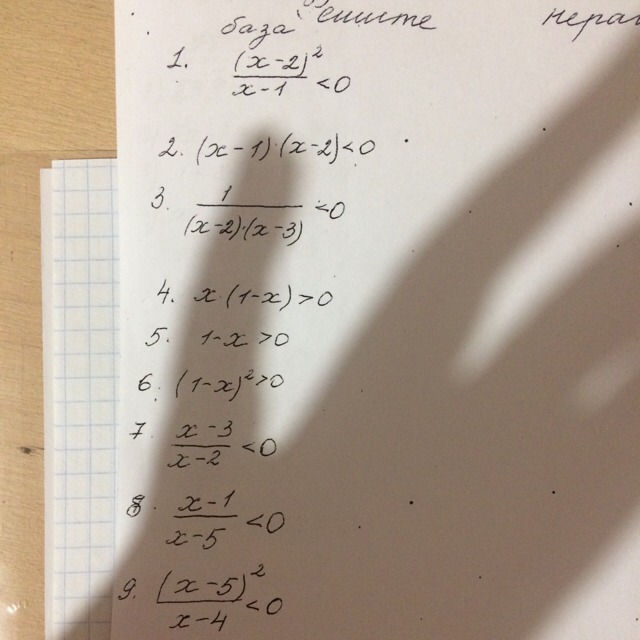 база ешите нерав
1. (x-2)² / x-1 <0
2. (x-1)·(x-2)<0
3. 1 / (x-2)·(x-3) <0
4. x·(1-x)>0
5. 1-x>0
6. (1-x)²>0
7 x-3 / x-2 <0
8. x-1 / x-5 <0
9. (x-5)² / x-4 <0